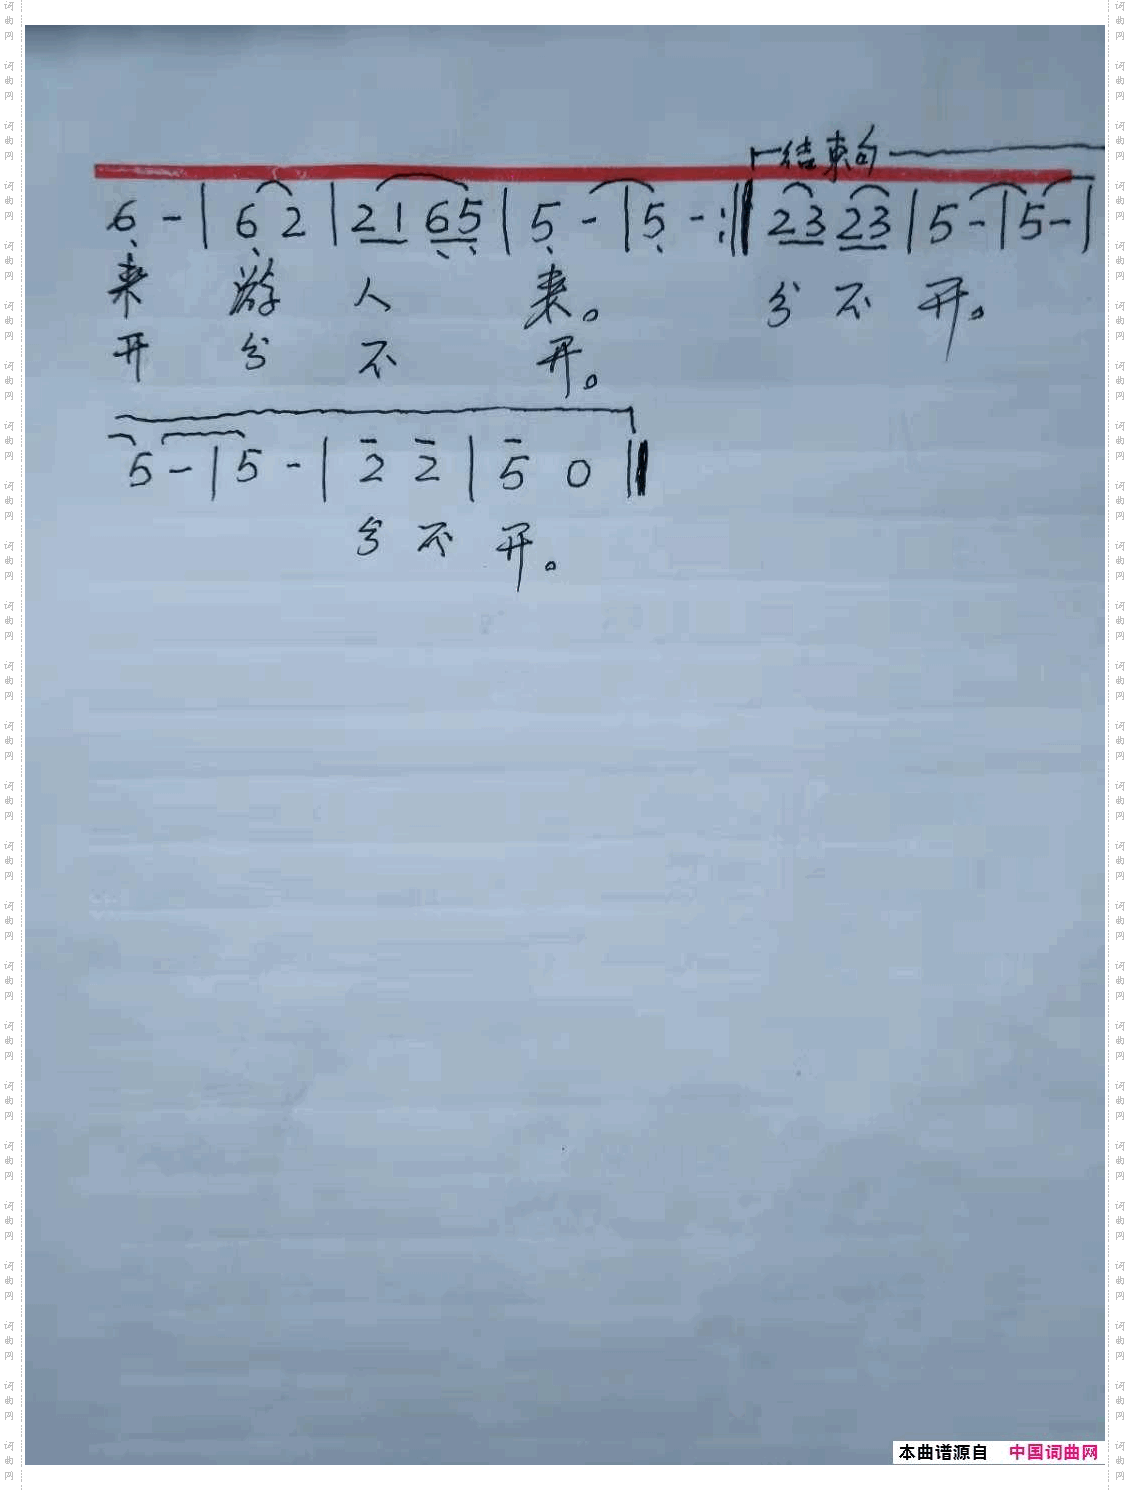 结束句
6 - | 6 2 | 21 65 | 5 - | 5 - :‖ 23 23 | 5 - | 5 - |
来 游 人 来。 分 不 开。
开 分 不 开。
5 - | 5 - | 2 2 | 5 0 ‖
分 不 开。
本曲谱源自 中国词曲网